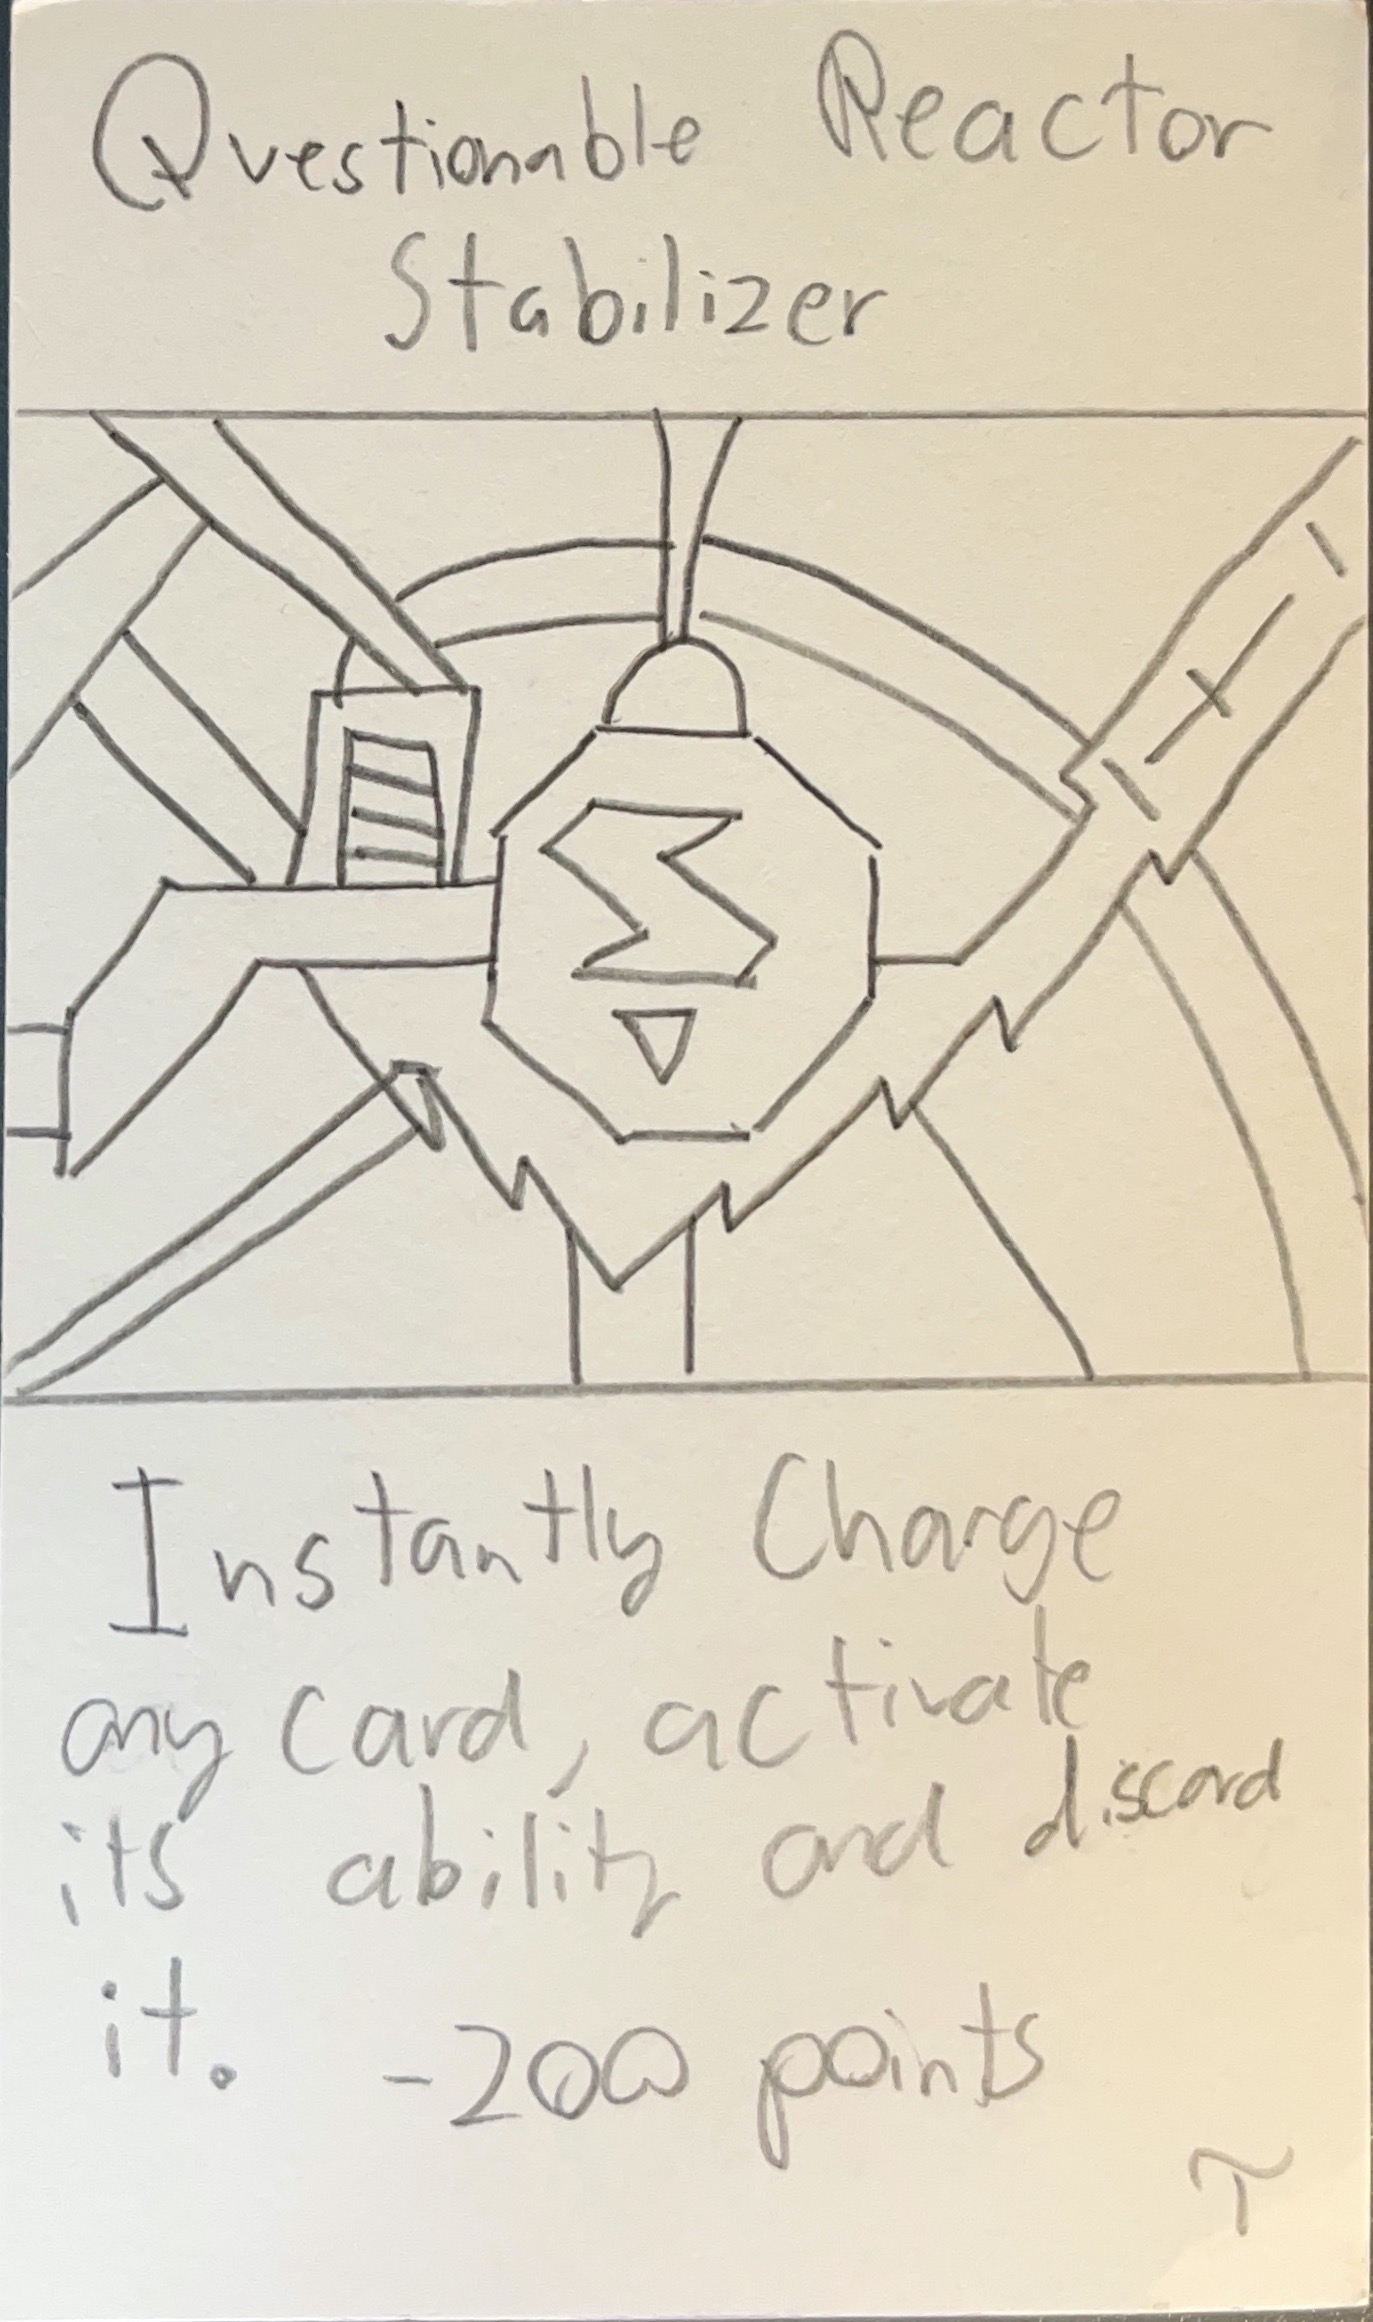 Questionable Reactor
Stabilizer
Instantly Charge
any card, activate
its ability and discard
it. -200 points
τ